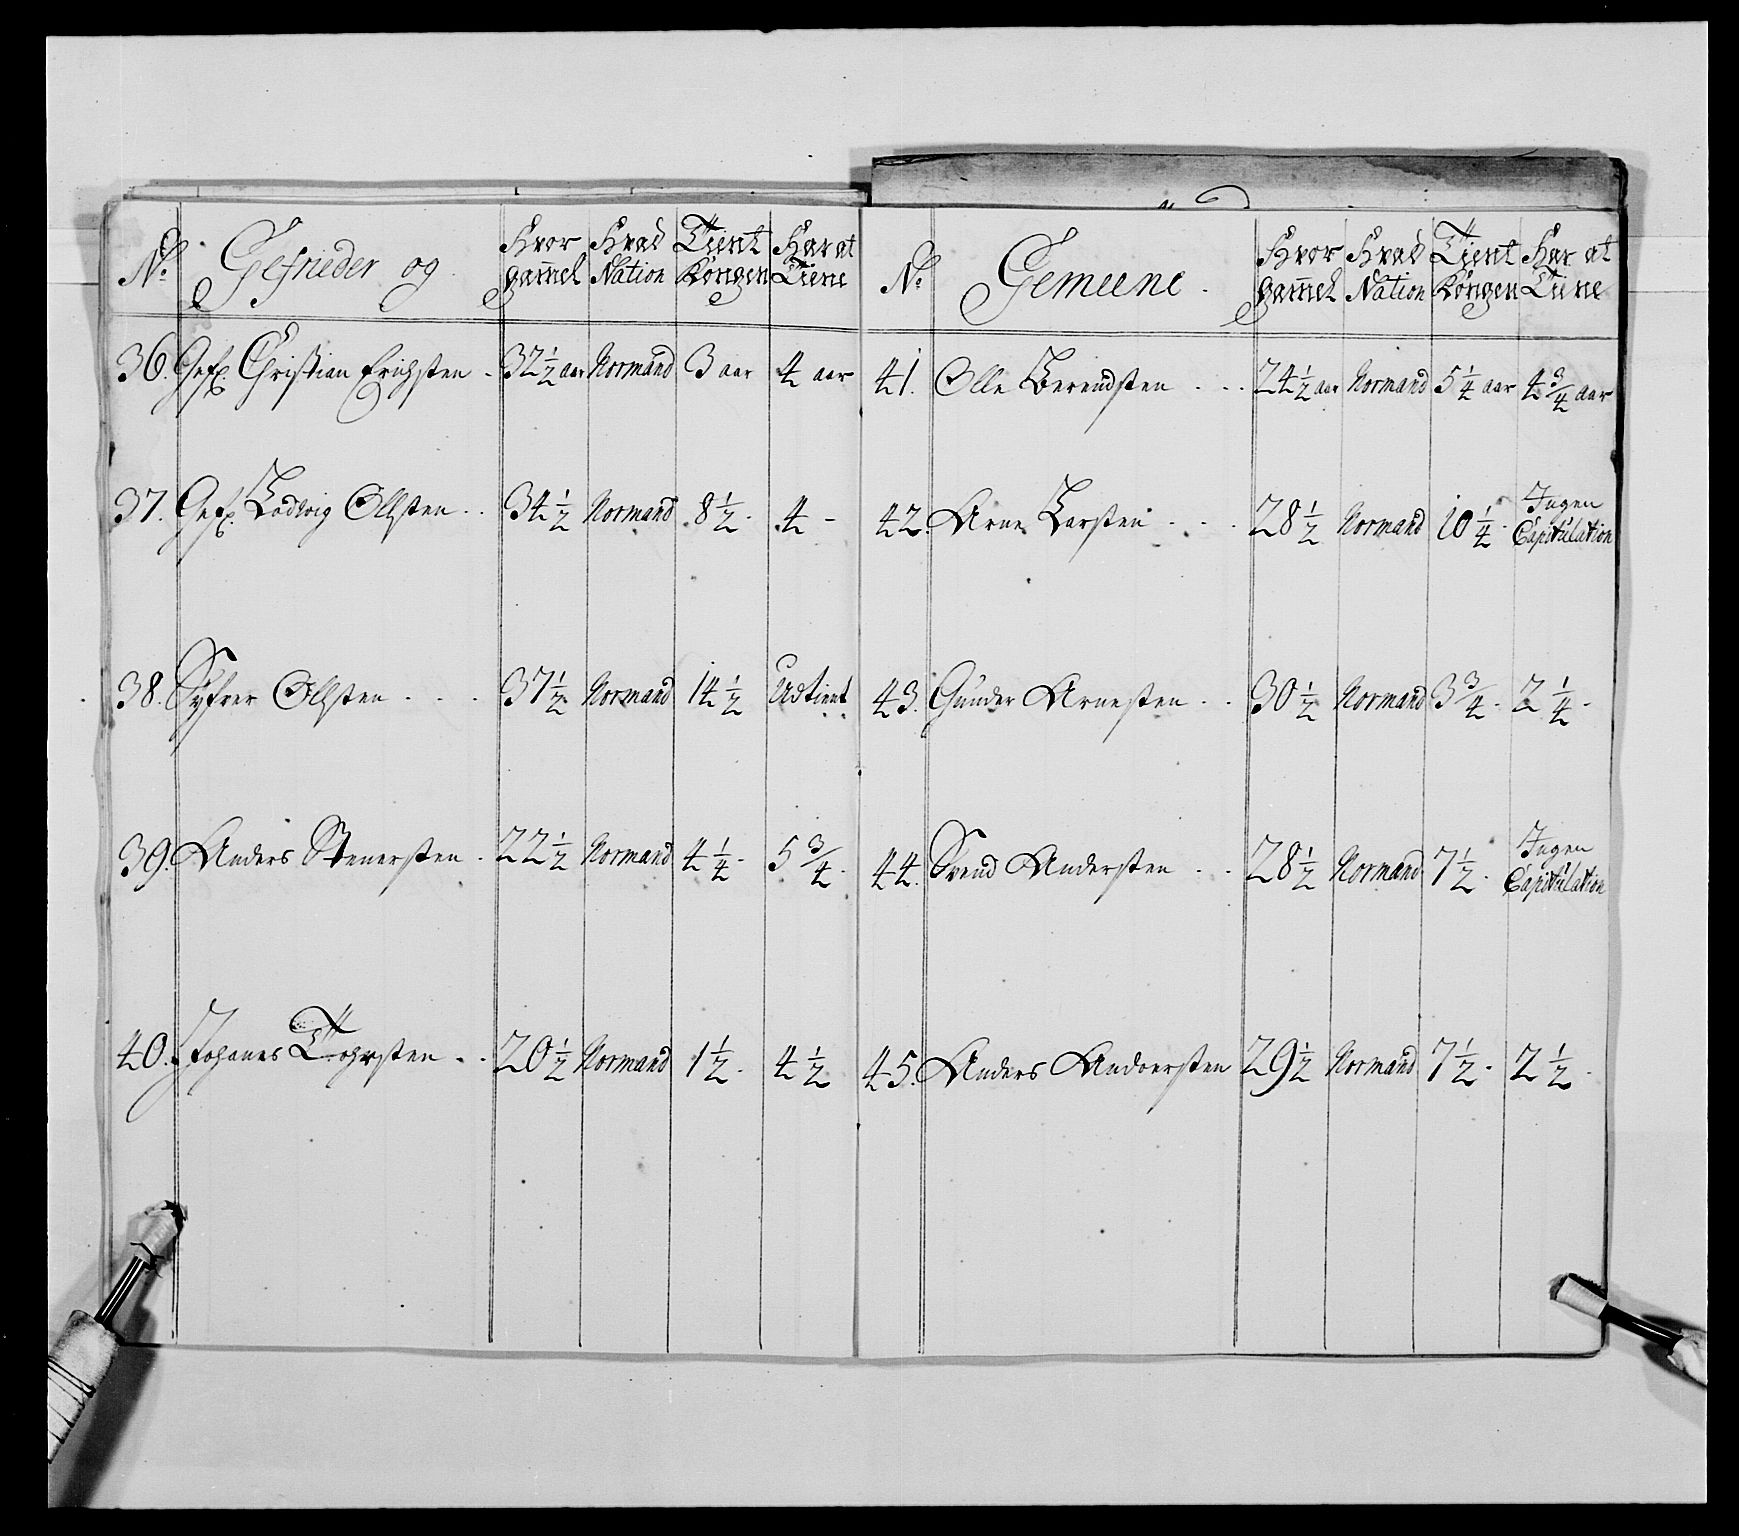 No. Gefrieder og Hvor gammel Hvad Nation Tient Kongen Har at Tiene
36. Gefr. Christian Erichsten . 32 1/2 aar Normand 3 aar 4 aar
37. Gefr. Lodvig Ollsten . . 34 1/2 Normand 8 1/2 . 4 –
38. Syfver Ollsten . . . 37 1/2 Normand 14 1/2 Udtient
39. Anders Stenersten . 22 1/2 Normand 4 1/4 . 5 3/4 .
40. Johanes Tohrsten . . 20 1/2 Normand 1 1/2 . 4 1/2
No. Gemeene . Hvor gammel Hvad Nation Tient Kongen Har at Tiene
41. Olle Berendsten . . . 24 1/2 aar Normand 5 1/4 aar 4 3/4 aar
42. Arne Larsten . . . 28 1/2 Normand 10 1/4 . Ingen Capitulation
43. Gunder Arnesten . . 30 1/2 Normand 3 3/4 . 2 1/4 .
44. Svend Andersten . . 28 1/2 Normand 7 1/2 . Ingen Capitulation
45. Anders Andoersten 29 1/2 Normand 7 1/2 . 2 1/2 .